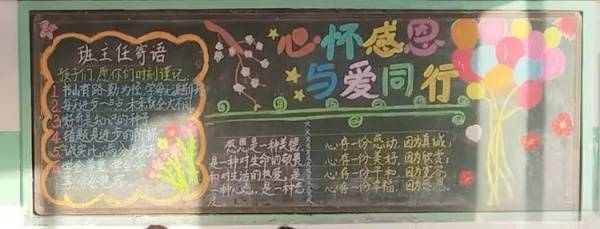 班主任寄语
孩子们,愿你们时刻谨记:
1 书山有路勤为径,学海无涯
2 每天进步一点点,未来就会大不同
3 好奇是知识的种子
4 错题是进步的阶梯
5 诚实比满分更
心怀感恩
与爱同行
感恩是一种美德,
是一种对生命的敬畏
和对生活的热爱,是
一种心态,是一种态
度。
心存一份感动,因为真诚;
心存一份美好,因为欣赏;
心存一份平和,因为宽容;
心存一份幸福,因为感恩。